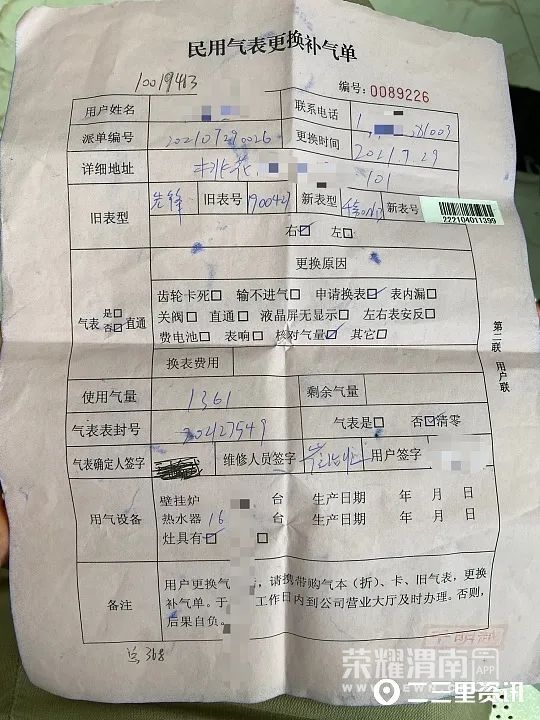 民用气表更换补气单
10019413
编号：0089226
用户姓名 联系电话
派单编号 202107290026 更换时间 2021.7.29
详细地址 101
旧表型 先锋 旧表号 新表型 新表号 222104011399
右☑ 左□
更换原因
气表 是□ 否☑ 直通
齿轮卡死□ 输不进气□ 申请换表□ 表内漏□
关阀□ 直通□ 液晶屏无显示□ 左右表安反□
费电池□ 表响□ 核对气量☑ 其它□
换表费用
使用气量 1361 剩余气量
气表表封号 20427549 气表是□ 否☑清零
气表确定人签字 维修人员签字 用户签字
用气设备
壁挂炉 台 生产日期 年 月 日
热水器 16 台 生产日期 年 月 日
灶具有□ □
备注
用户更换气 ，请携带购气本（折）、卡、旧气表，更换
补气单。于 工作日内到公司营业大厅及时办理。否则，
后果自负。
第二联 用户联
368
荣耀渭南 APP
二三里资讯